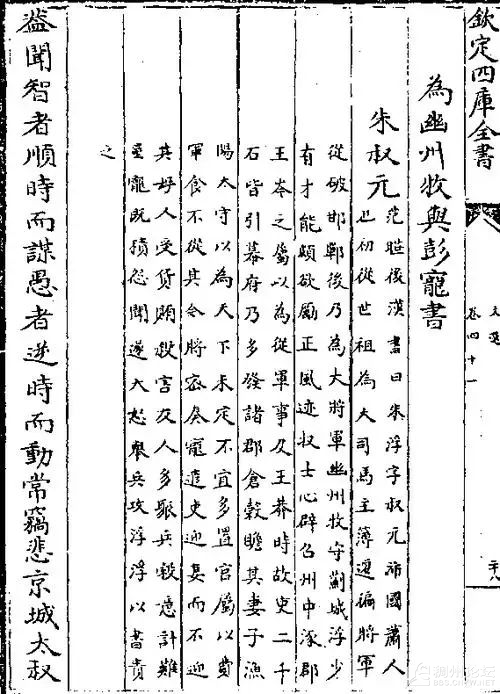 欽定四庫全書
文選
卷四十一
為幽州牧與彭寵書
朱叔元
范曄後漢書曰朱浮字叔元沛國蕭人
也初從世祖為大司馬主簿遷偏將軍
從破邯鄲後乃為大將軍幽州牧守薊城浮少
有才能頗欲勵正風迹收士心辟召州中涿郡
王岑之屬以為從軍事及王莽時故吏二千
石皆引幕府乃多發諸郡倉穀贍其妻子漁
陽太守以為天下未定不宜多置官屬以費
軍食不從其令將密奏寵遣吏迎妻而不迎
其母又受貨賄殺害友人多聚兵穀意計難
量寵既積怨聞遂大怒舉兵攻浮浮以書責
之
葢聞智者順時而謀愚者逆時而動常竊悲京城太叔
稠州论坛
BBS.CNYW.NET